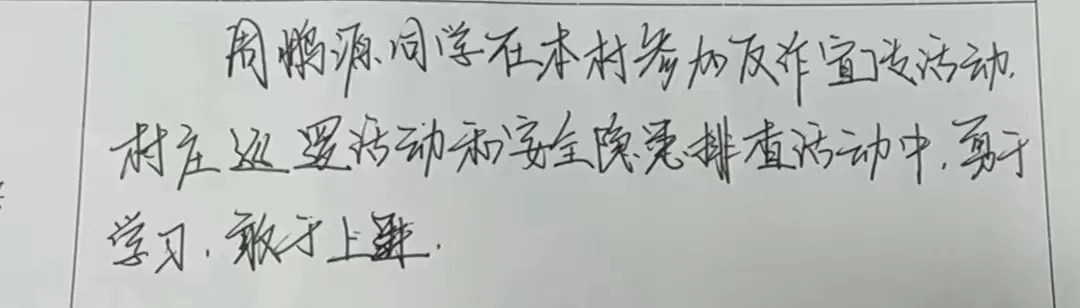 周鹏源同学在本村参加反诈宣传活动.
村庄巡逻活动和安全隐患排查活动中,勇于
学习.敢于上进.